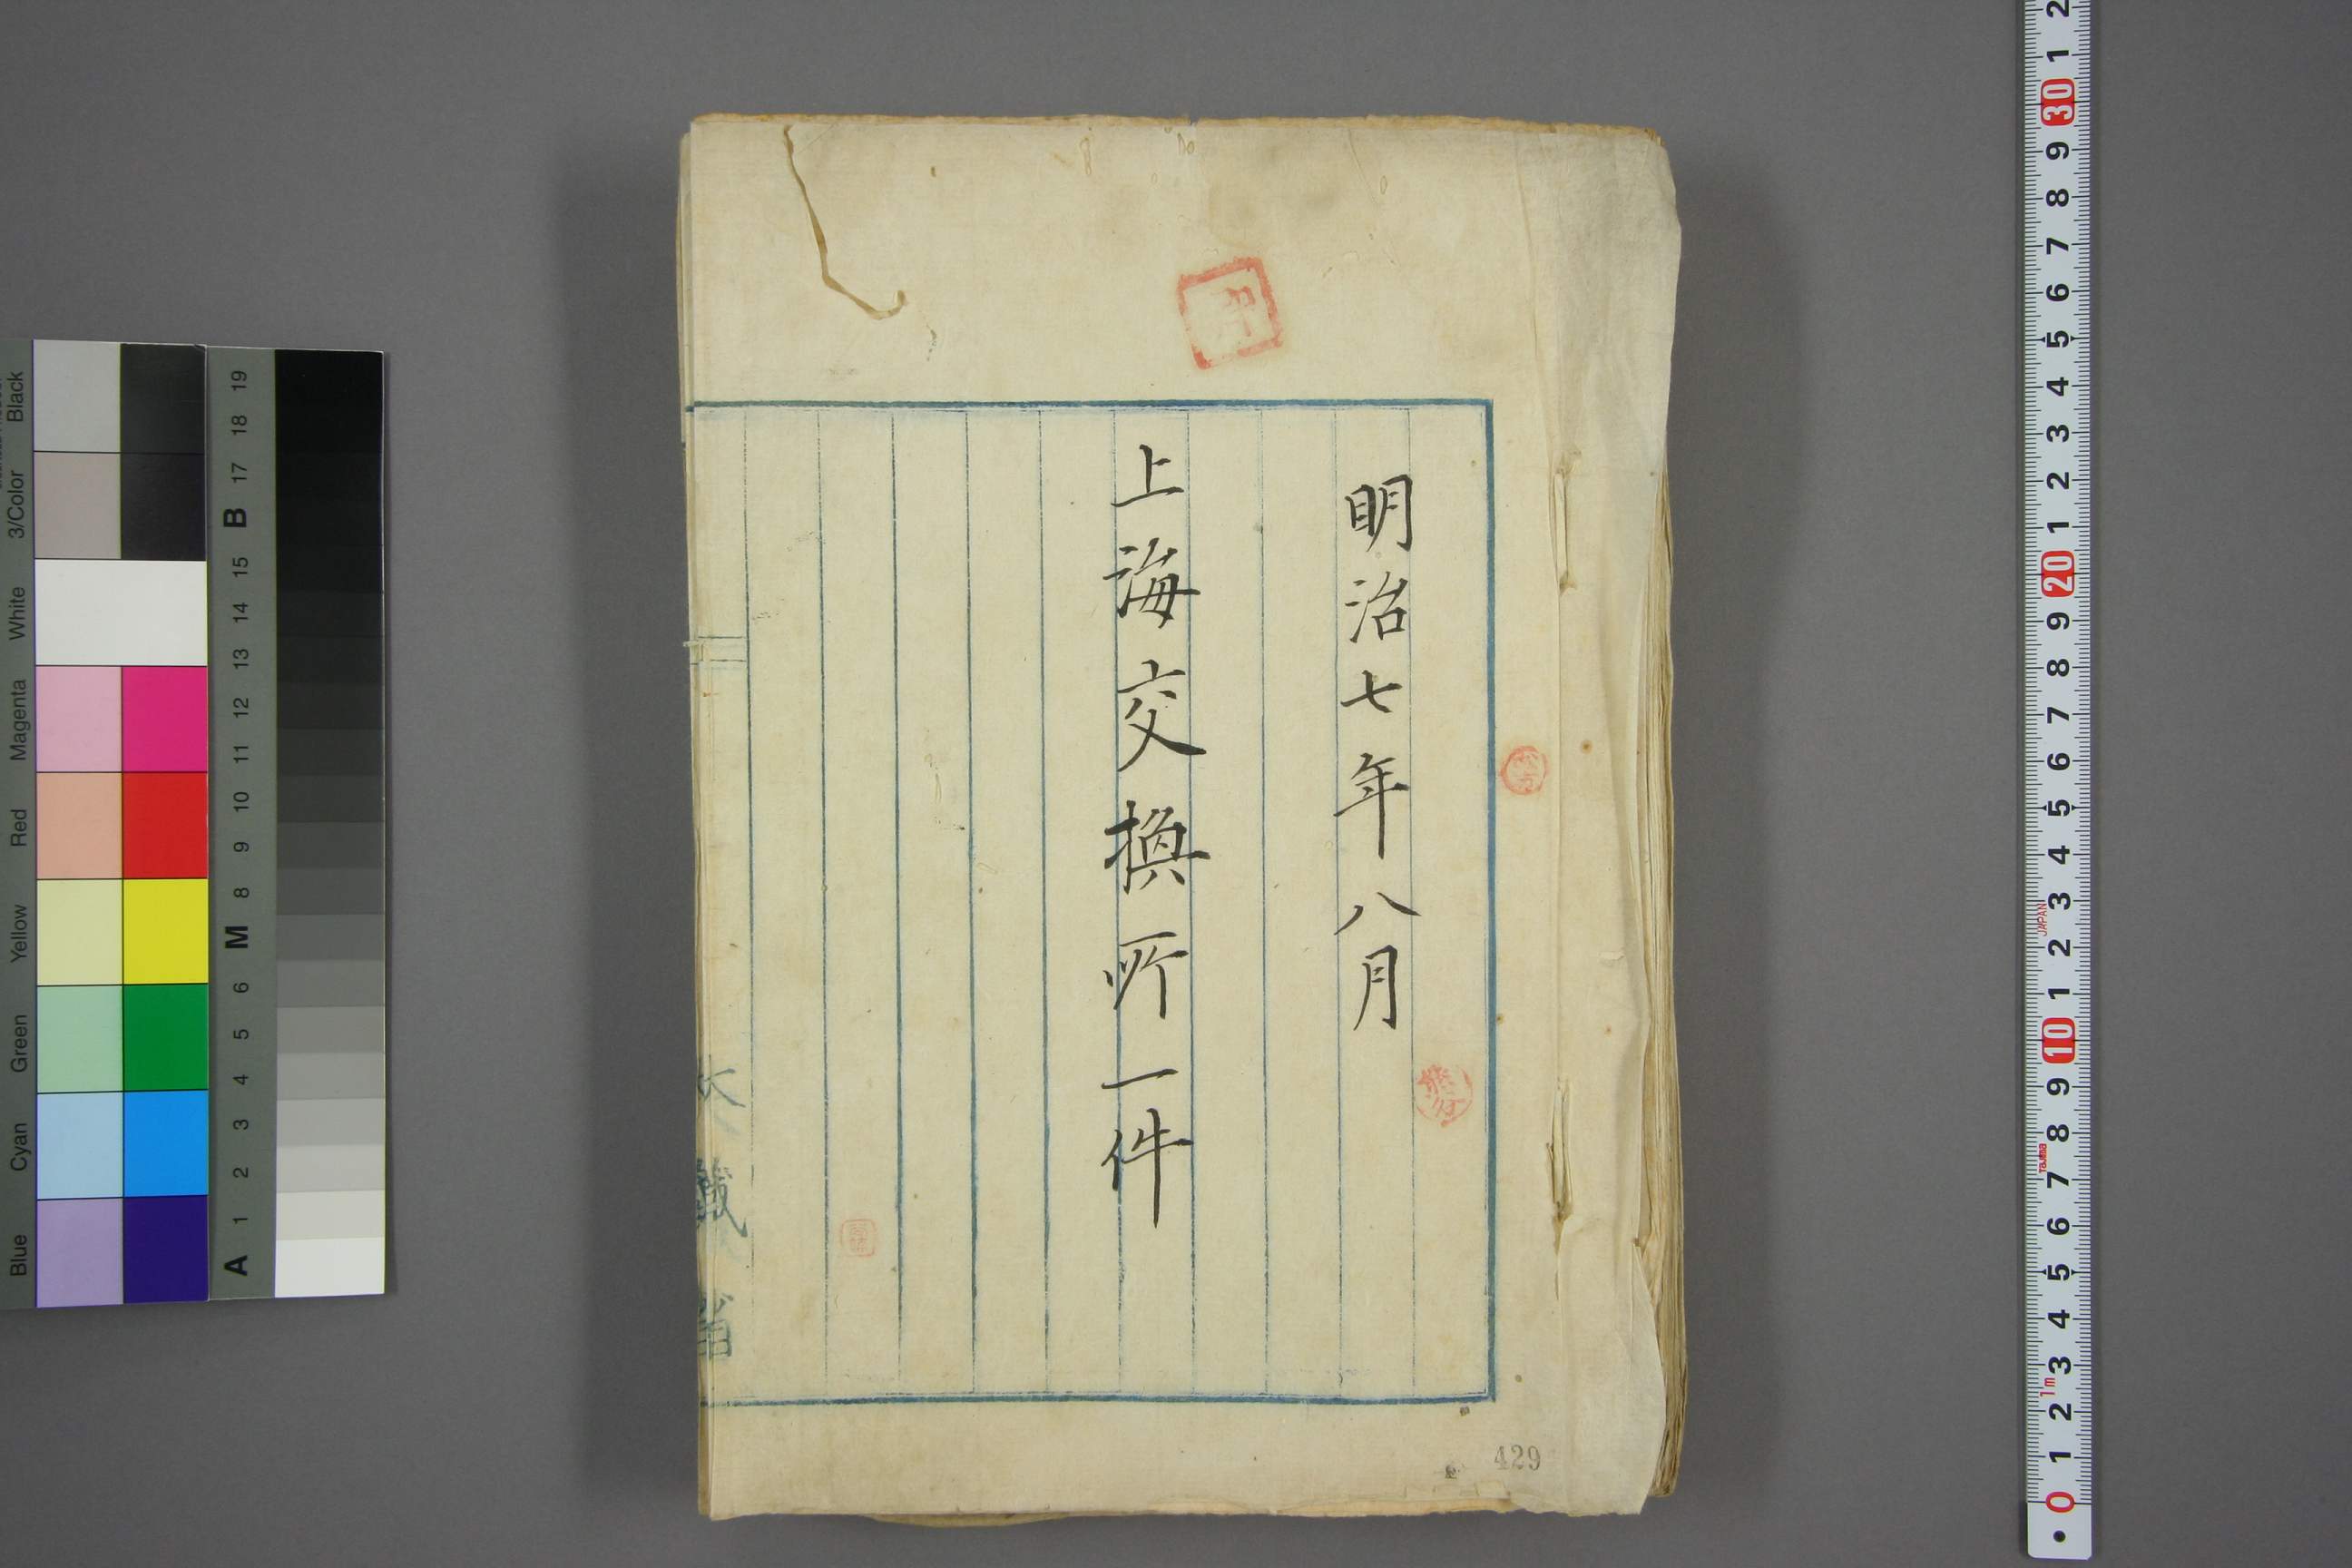 明治七年八月
上海交換所一件
大藏省
429
Black
3/Color
White
Magenta
Red
Yellow
Green
Cyan
Blue
19
18
17
B
15
14
13
12
11
10
9
8
M
6
5
4
3
2
1
A
2
1
30
9
8
7
6
5
4
3
2
1
20
9
8
7
6
5
4
3
JAPAN
2
1
10
9
8
Tajima
7
6
5
4
3
1m
2
1
0